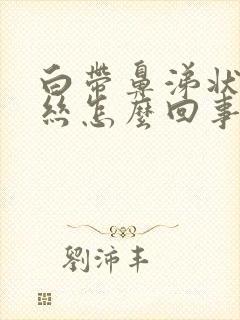 白帶鼻涕狀
絲怎麼回事
劉沛丰